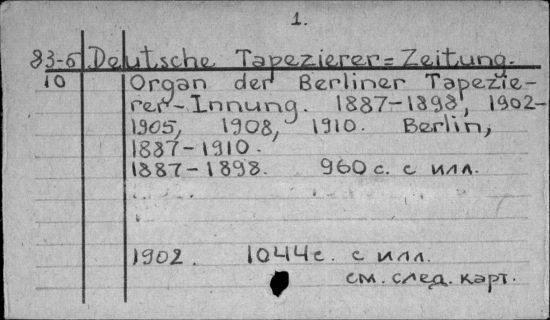 1.
83-5 Deutsche Tapezierer=Zeitung.
10 Organ der Berliner Tapezie-
rer-Innung. 1887-1898, 1902-
1905, 1908, 1910. Berlin,
1887-1910.
1887-1898. 960 с. с илл.
1902. 1044 с. с илл.
см. след. карт.